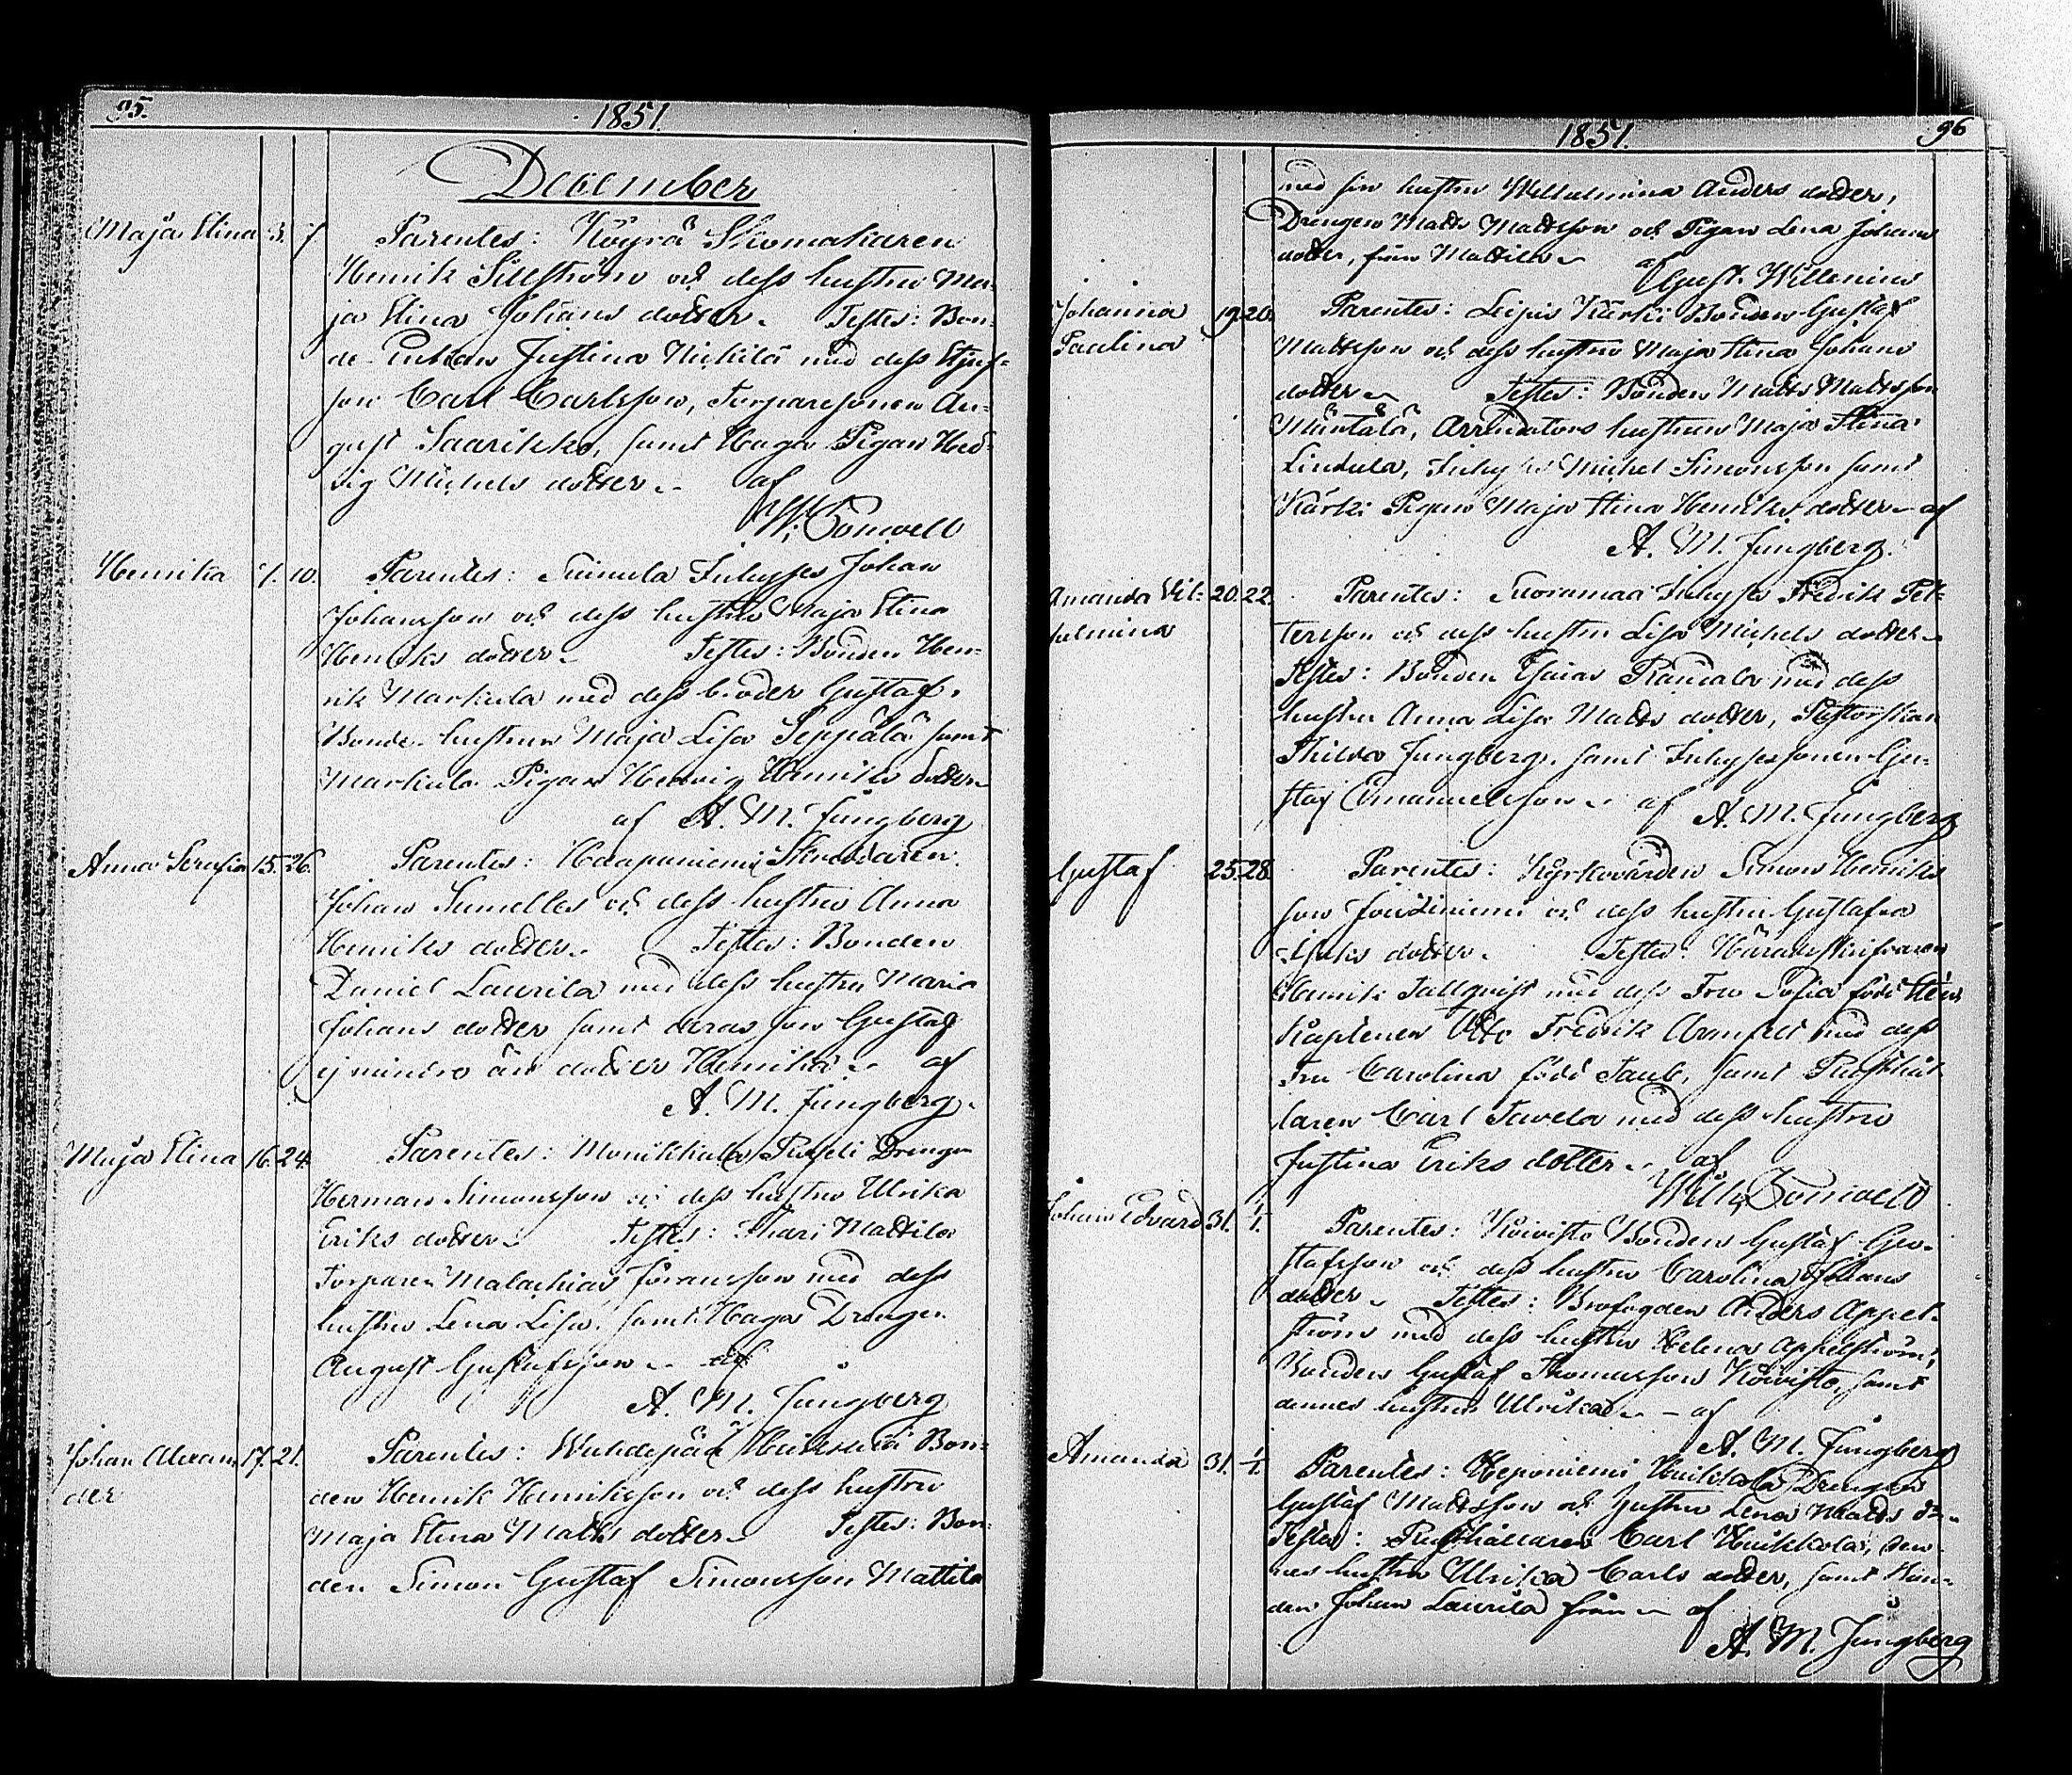 95.
1851.
December
Maja Stina 3. 7 Parentes: Köyrä Skomakaren
Henrik Sillström och dess hustru Ma-
ja Stina Johans dotter. Testes: Bon-
de Enkan Justina Nickilä med dess Styf-
son Carl Carlsson, Torparesonen Au-
gust Saarikko, samt Haga Pigan Hed-
vig Michels dotter. af
W. Bonvell
Henrika 7. 10. Parentes: Inhyses Johan
Johansson och dess hustru Maja Stina
Henriks dotter. Testes: Bonden Hen-
rik Markula med dess broder Gustaf,
Bonde hustrun Maja Lisa Seppälä samt
Markula Pigan Hedvig Henriks dotter
af A. M. Jungberg
Anna Serafia 15. 26. Parentes: Haapaniemi Skräddaren
Johan Sumelles och dess hustru Anna
Henriks dotter. Testes: Bonden
Daniel Laurila med dess hustru Maria
Johans dotter samt deras son Gustaf
ej mindre än dotter Henrika. af
A. M. Jungberg.
Maja Stina 16. 24. Parentes: Monikkala Drengen
Herman Simonsson och dess hustru Ulrika
Eriks dotter. Testes: Mattila
Torparen Malachias Göransson med dess
hustru Lena Lisa, samt Haga Drengen
August Gustafsson. af
A. M. Jungberg
Johan Alexan- 17. 21. Parentes: Bon-
der
den Henrik Henriksson och dess hustru
Maja Stina Matts dotter. Testes: Bon-
den Simon Gustaf Simonsson Mattila
1851.
96
med sin hustru Wilhelmina Anders dotter,
Drengen Matts Mattsson och Pigan Lena Johans
dotter, från Mattila. af
Gust. Willenius
Johanna 19. 20. Parentes: Leipis Kärki Bonden Gustaf
Paulina
Mattsson och dess hustru Maja Stina Johans
dotter. Testes: Bonden Matts Mattsson
Mäntälä, Arrendators hustrun Maja Stina
Lindula, Inhyses Michel Simonsson samt
Kärki Pigan Maja Stina Henriks dotter. af
A. M. Jungberg.
Amanda Vil- 20. 22. Parentes: Suoramaa Inhyses Fredrik Pet-
helmina
tersson och dess hustru Lisa Michels dotter.
Testes: Bonden Esaias med dess
hustru Anna Lisa Matts dotter, Pastorskan
Thilda Jungberg, samt Inhysessonen Gu-
staf Emanuelsson. af A. M. Jungberg
Gustaf 25. 28. Parentes: Kyrkovärden Simon Henriks
son Joutziniemi och dess hustru Gustafva
Isaks dotter. Testes: Häradsskrifvaren
Henrik Tallqvist med dess Fru Sofia född
Kaptenen Otto Fredrik Aminoff med dess
Fru Carolina född Taube, samt Rusthål-
laren Carl Tavela med dess hustru
Justina Eriks dotter. af
Wilh. Bonvell
Johan Edvard 31. 1/1. Parentes: Koivisto Bonden Gustaf Gu-
stafsson och dess hustru Carolina Johans
dotter. Testes: Brofogden Anders Appel-
ström med dess hustru Helena Appelström,
Bonden Gustaf Thomasson Koivisto, samt
dennes hustru Ulrika. af
A. M. Jungberg
Amanda 31. 1/1. Parentes: Heponiemi Huikkola Drengen
Gustaf Mattsson och hustru Lena Matts dr.
Testes: Rusthållaren Carl Huikkola, den-
nes hustru Ulrika Carls dotter, samt Bon-
den Johan Laurila från. af
A. M. Jungberg